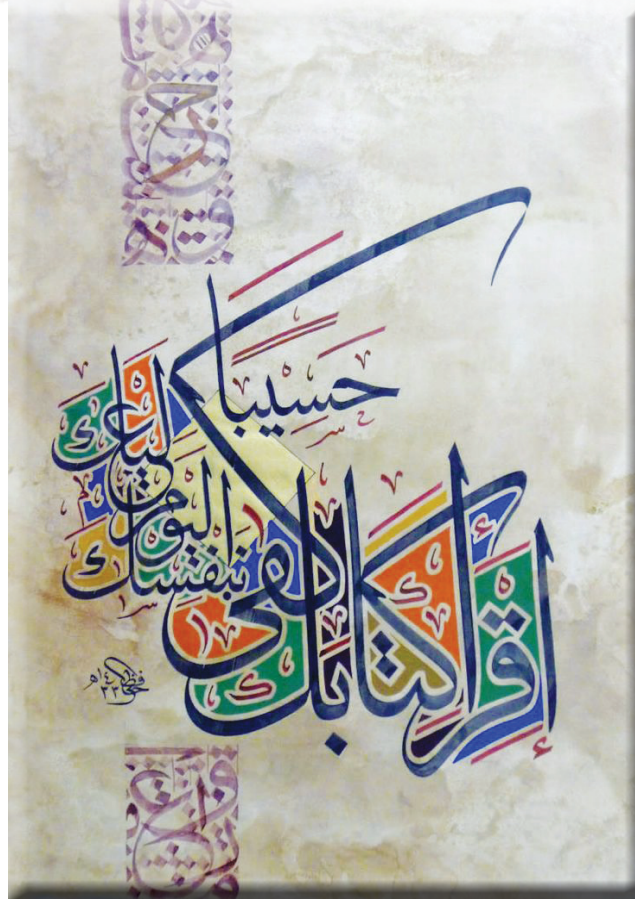 إقرأ كتابك كفى
بنفسك اليوم عليك
حسيبا